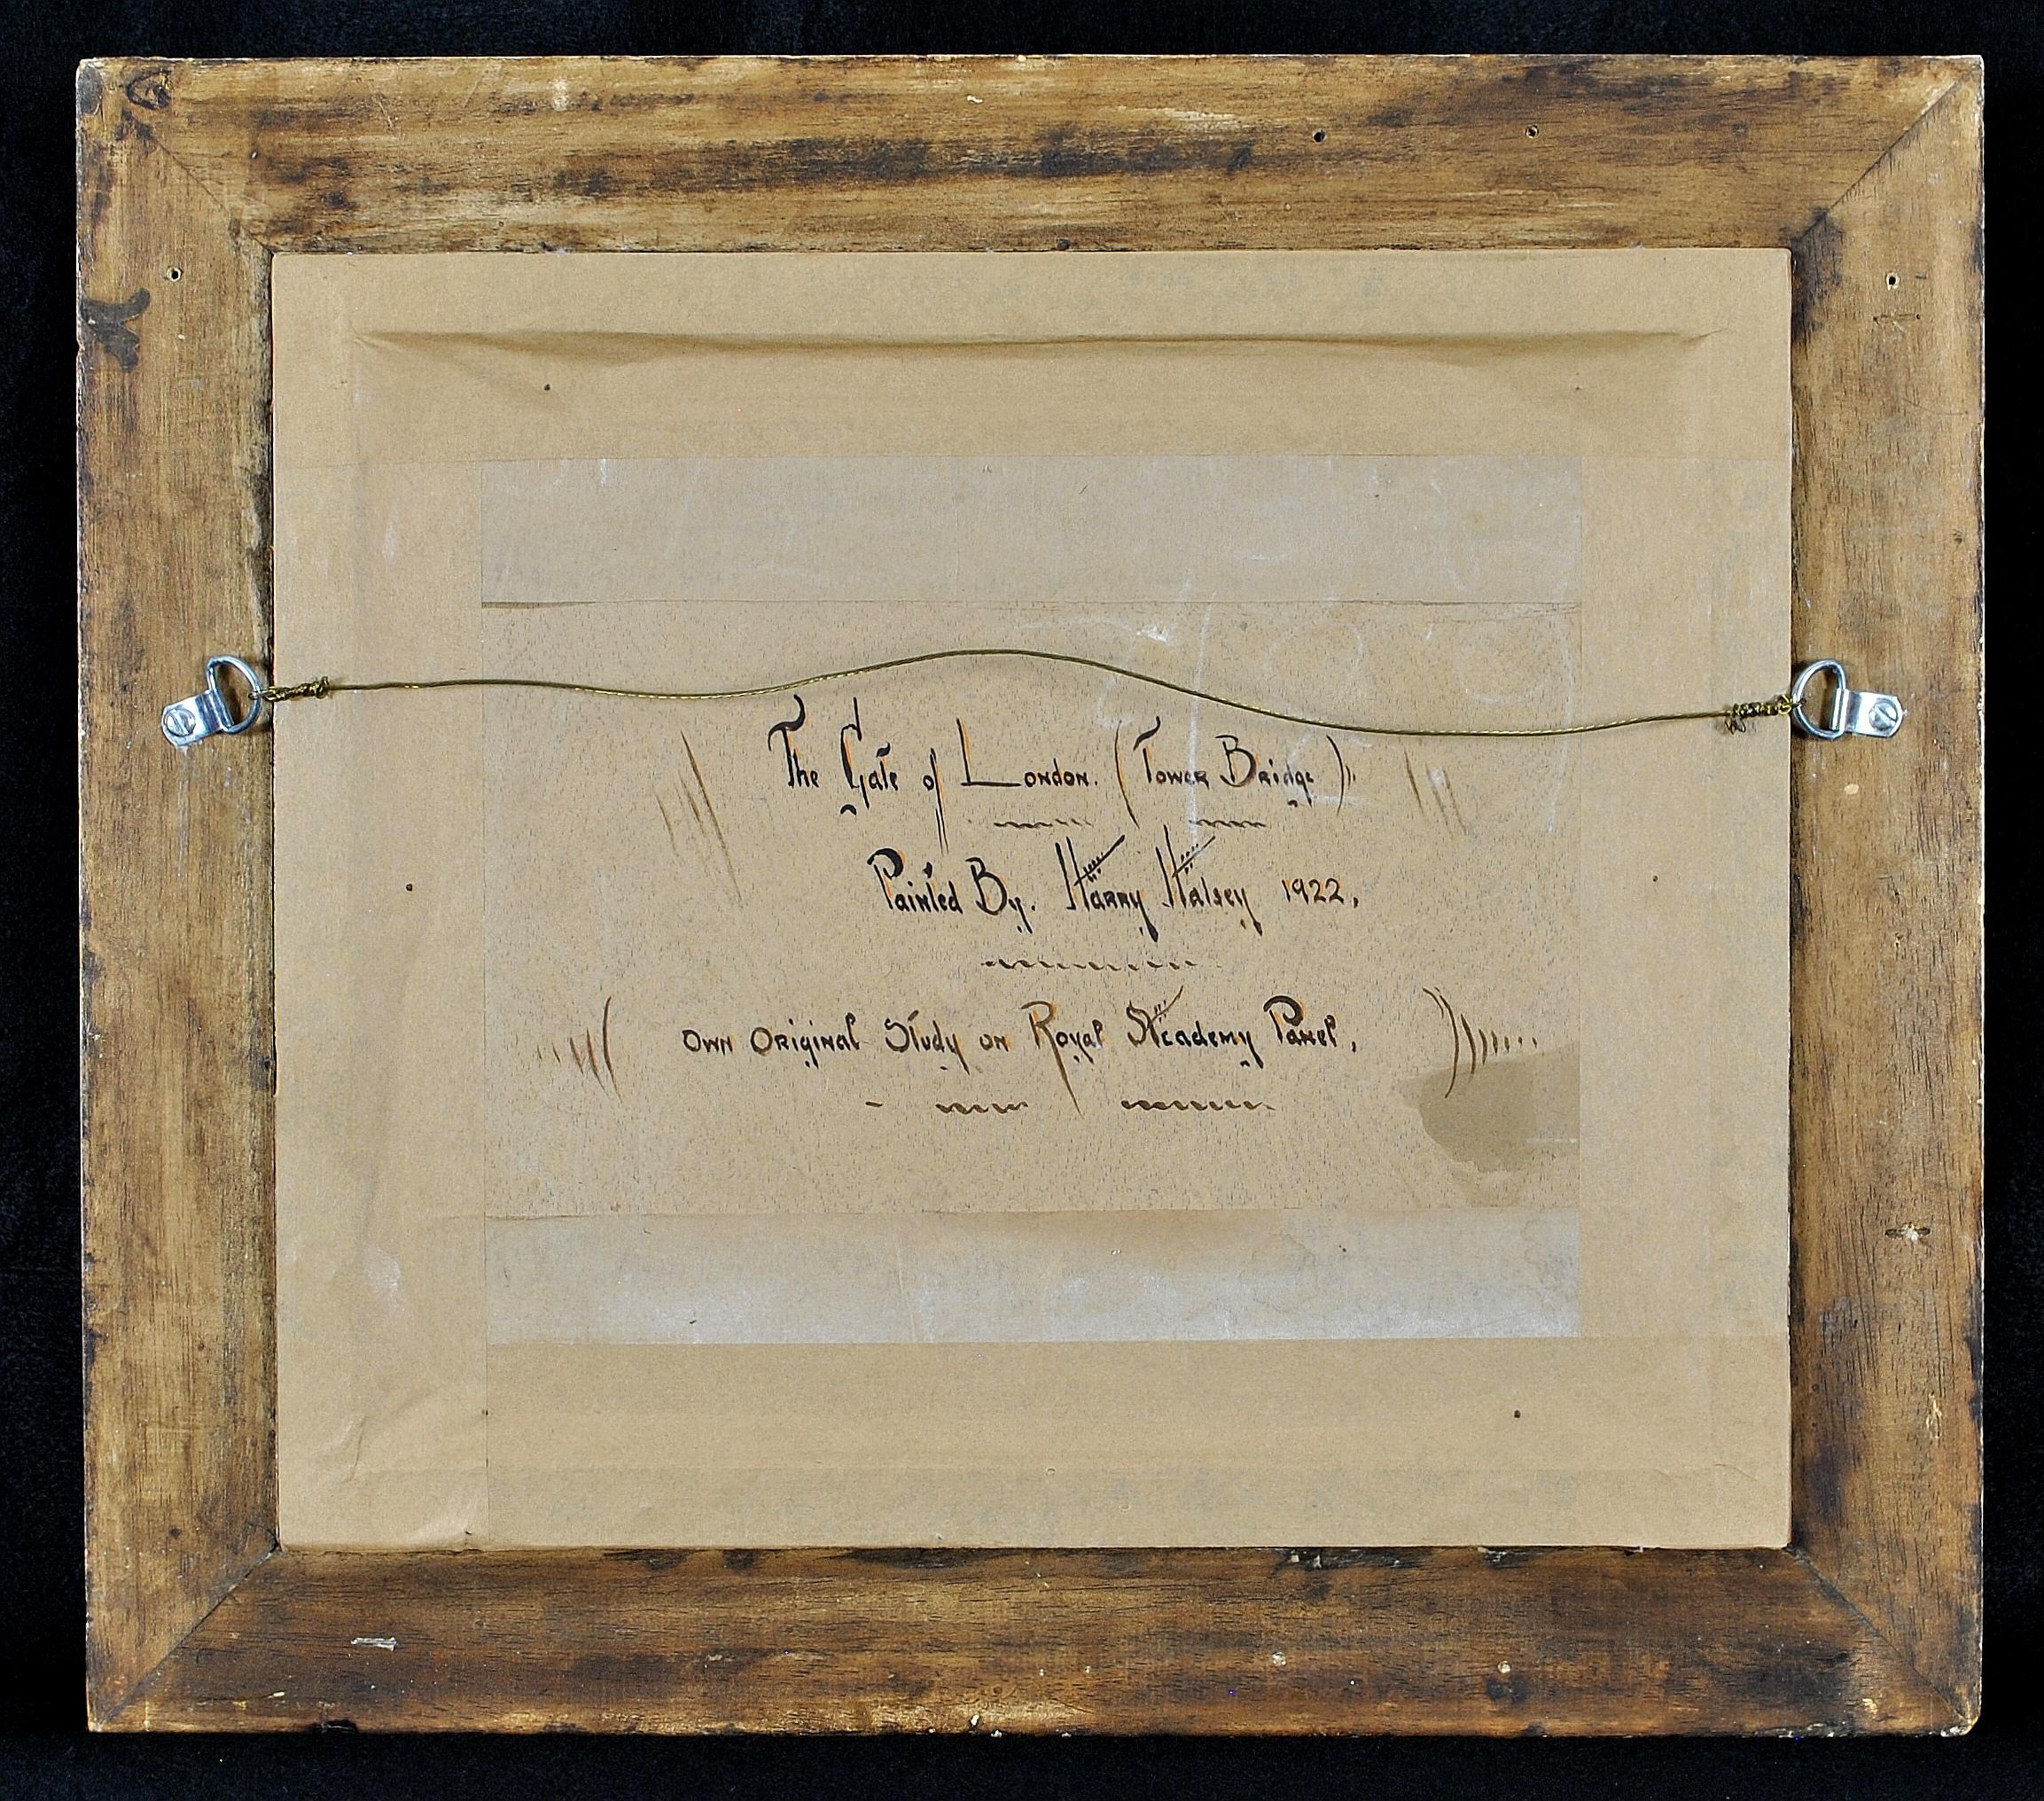 The Gate of London. (Tower Bridge)
Painted By. Harry Halsey 1922,
(Own Original Study on Royal Academy Panel,)